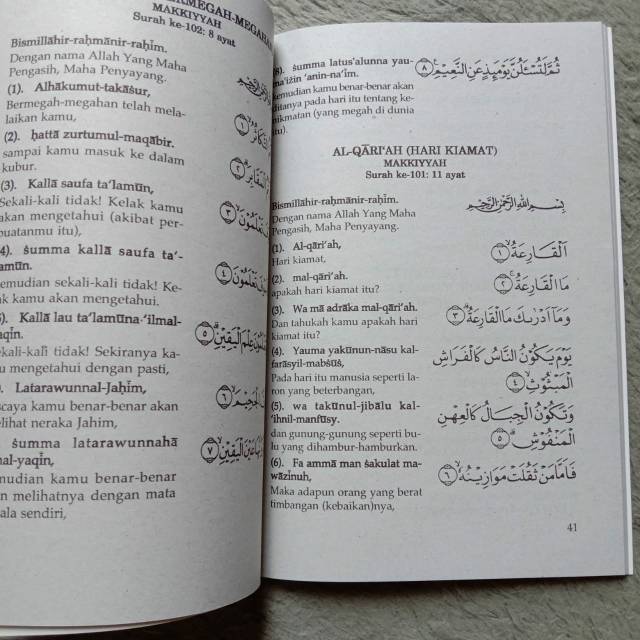 MAKKIYYAH
Surah ke-102: 8 ayat
Bismillāhir-raḥmānir-raḥīm.
Dengan nama Allah Yang Maha
Pengasih, Maha Penyayang.
(1). Alhākumut-takāśur,
Bermegah-megahan telah mela-
laikan kamu,
(2). ḥattā zurtumul-maqābir.
sampai kamu masuk ke dalam
kubur.
(3). Kallā saufa ta'lamūn,
Sekali-kali tidak! Kelak kamu
akan mengetahui (akibat per-
buatanmu itu),
4). śumma kallā saufa ta'-
lamūn.
emudian sekali-kali tidak! Ke-
k kamu akan mengetahui.
Kallā lau ta'lamūna-'ilmal-
qīn.
kali-kali tidak! Sekiranya ka-
u mengetahui dengan pasti,
Latarawunnal-Jaḥīm,
caya kamu benar-benar akan
elihat neraka Jahim,
śumma latarawunnahā
al-yaqīn,
mudian kamu benar-benar
n melihatnya dengan mata
ala sendiri,
٨). śumma latus'alunna yau-
ma'iżin 'anin-na'īm.
kemudian kamu benar-benar akan
ditanya pada hari itu tentang ke-
nikmatan (yang megah di dunia
itu).
ثُمَّ لَتُسْـَٔلُنَّ يَوْمَىِٕذٍ عَنِ النَّعِيْمِ ٨
AL-QĀRI'AH (HARI KIAMAT)
MAKKIYYAH
Surah ke-101: 11 ayat
Bismillāhir-raḥmānir-raḥīm.
Dengan nama Allah Yang Maha
Pengasih, Maha Penyayang.
بِسْمِ اللّٰهِ الرَّحْمٰنِ الرَّحِيْمِ
(1). Al-qāri'ah,
Hari kiamat,
اَلْقَارِعَةُ ١
(2). mal-qāri'ah.
apakah hari kiamat itu?
مَا الْقَارِعَةُ ٢
(3). Wa mā adrāka mal-qāri'ah.
Dan tahukah kamu apakah hari
kiamat itu?
وَمَآ اَدْرٰىكَ مَا الْقَارِعَةُ ٣
(4). Yauma yakūnun-nāsu kal-
farāsyil-mabśūś,
Pada hari itu manusia seperti la-
ron yang beterbangan,
يَوْمَ يَكُوْنُ النَّاسُ كَالْفَرَاشِ
الْمَبْثُوْثِ ٤
(5). wa takūnul-jibālu kal-
'ihnil-manfūsy.
dan gunung-gunung seperti bu-
lu yang dihambur-hamburkan.
وَتَكُوْنُ الْجِبَالُ كَالْعِهْنِ
الْمَنْفُوْشِ ٥
(6). Fa ammā man śakulat ma-
wāzīnuh,
Maka adapun orang yang berat
timbangan (kebaikan)nya,
فَاَمَّا مَنْ ثَقُلَتْ مَوَازِيْنُهٗ ٦
41